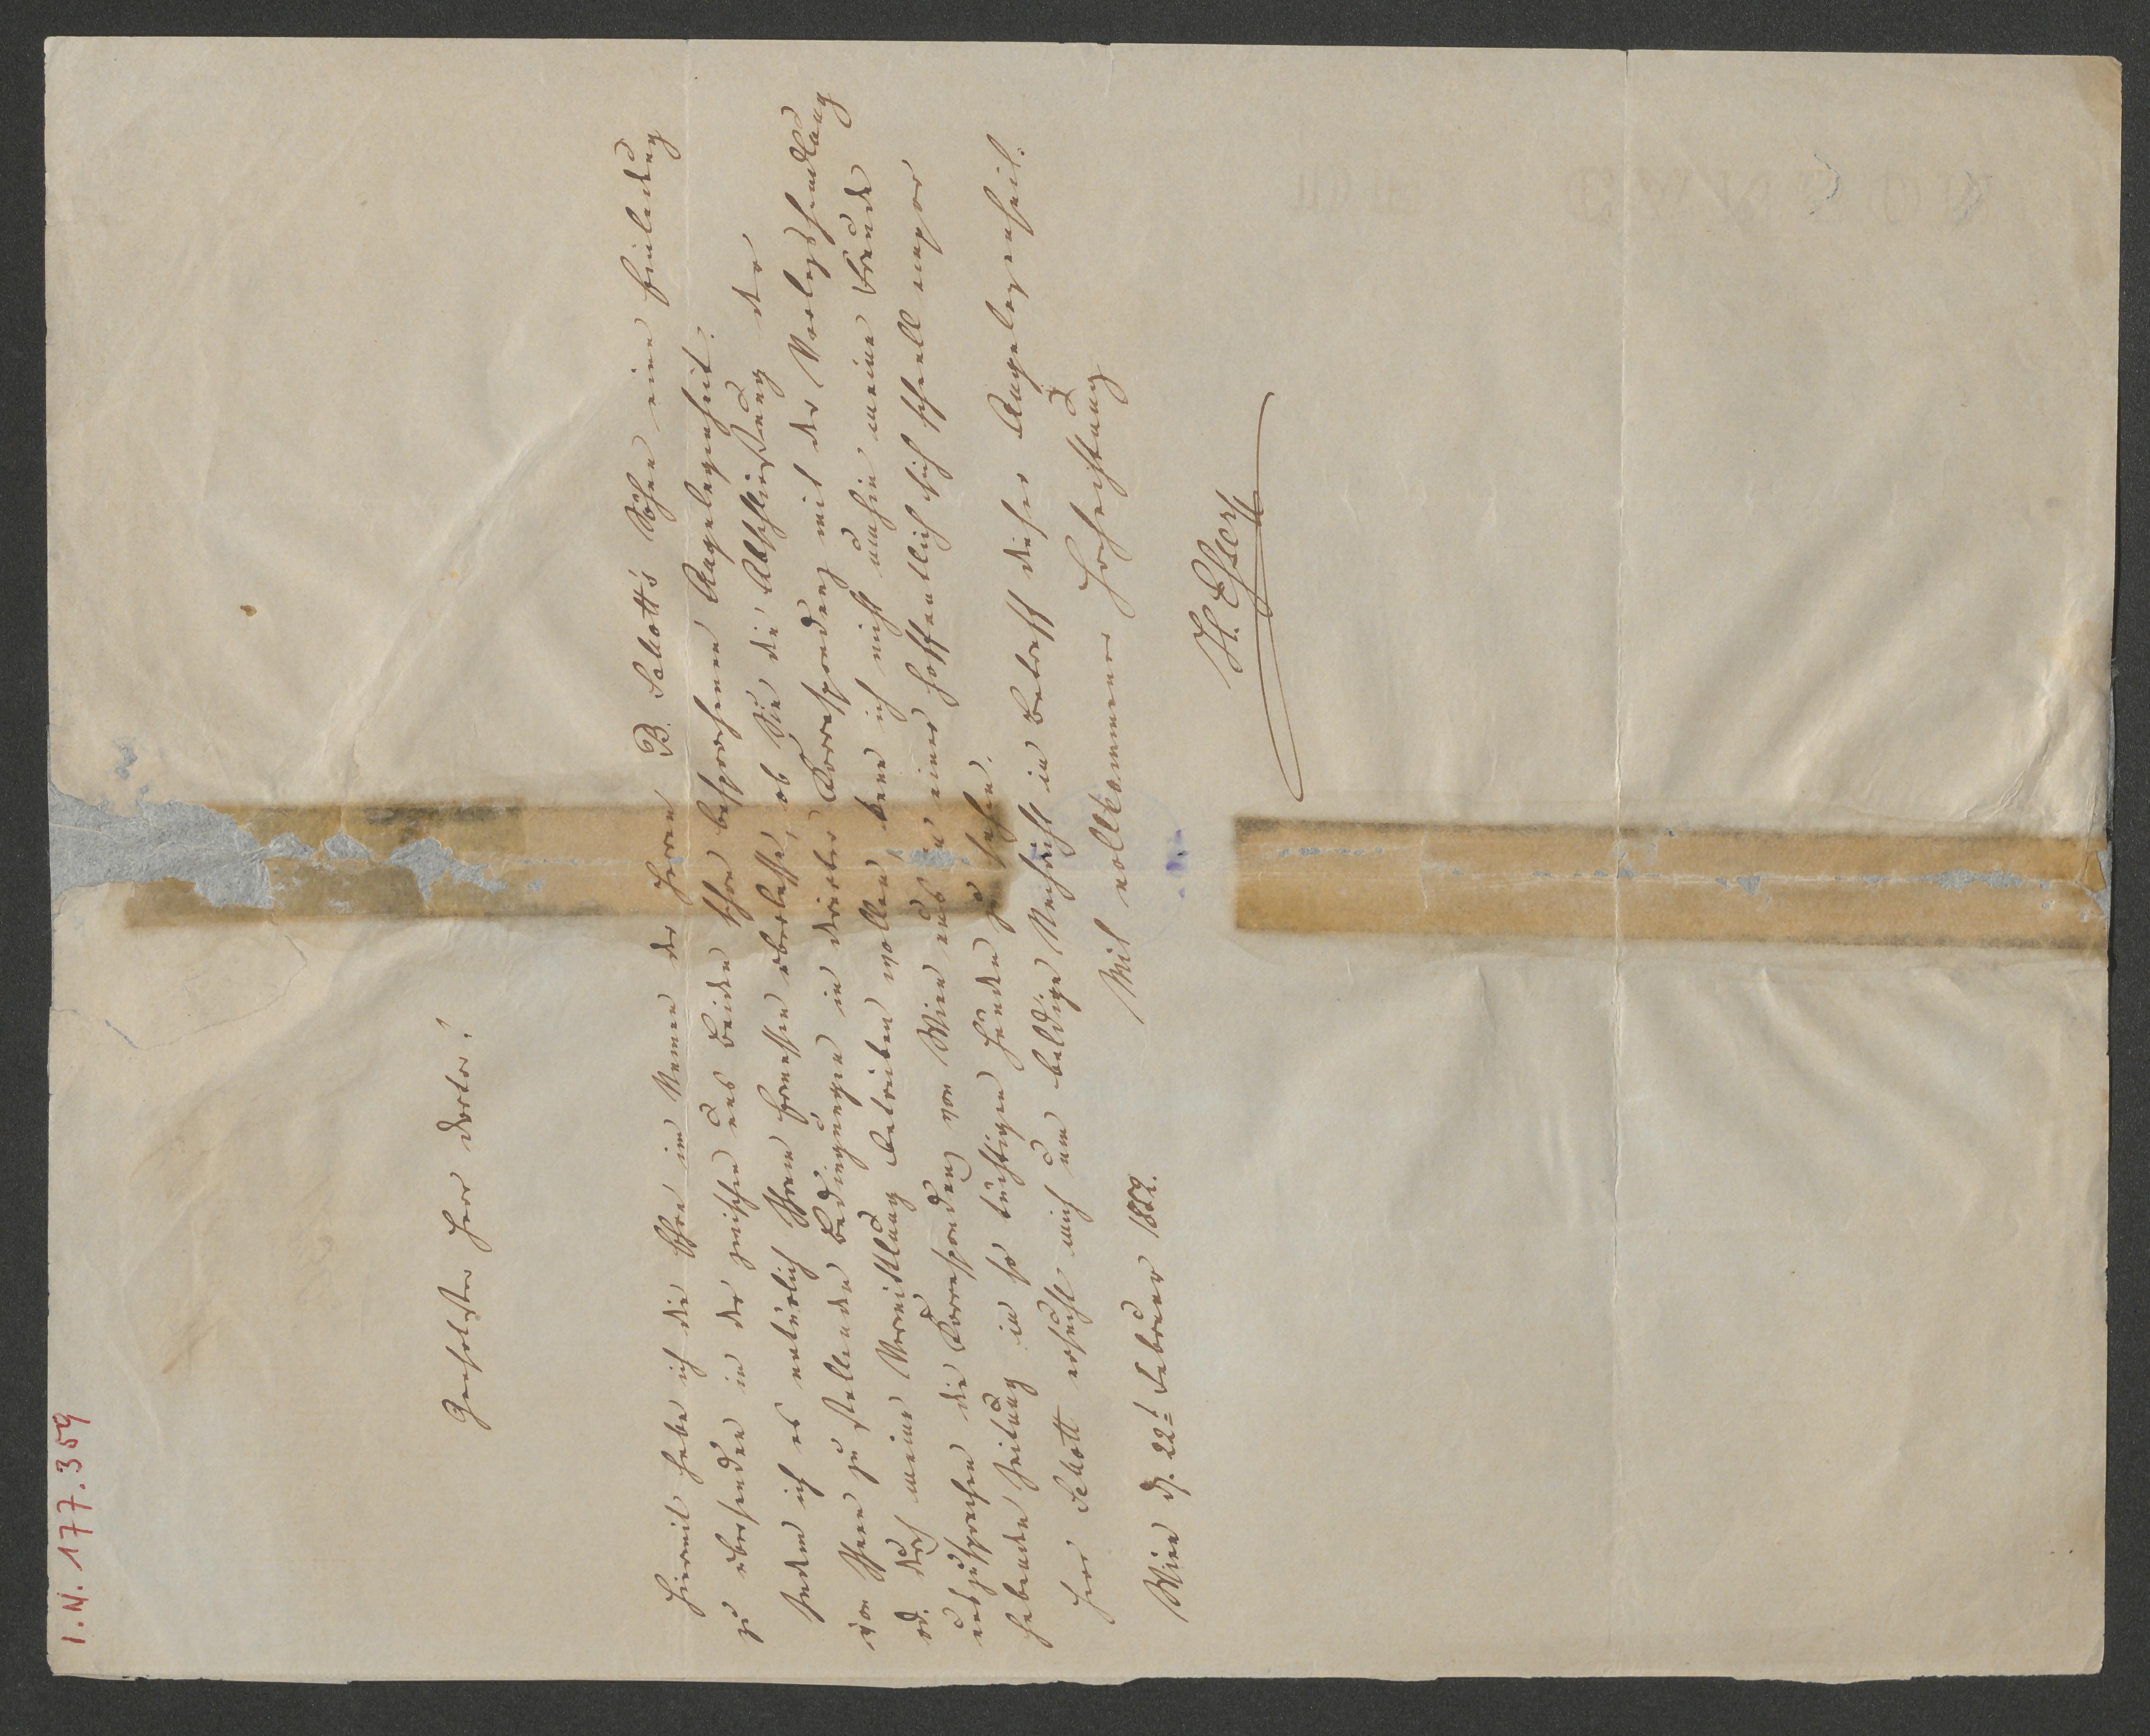 I.N. 177.359
Geehrtester Herr Doctor!
Hiermit habe ich die Ehre im Namen der Herren B. Schott's Söhne eine Einladung
zu übersenden in der zwischen uns Beiden schon besprochenen Angelegenheit;
indem ich es natürlich Ihrem Ermessen überlasse, ob Sie die Abschliessung der
von Ihnen zu stellenden Bedingungen in directer Korrespondenz mit der Verlagshandlung
od. durch meine Vermittlung betreiben wollen, kann ich nicht umhin meine Freude
auszusprechen die Korrespondenz von Wien aus in einer hoffentlich sich schnell empor
hebenden Zeitung in so tüchtigen Händen zu sehen.
Herr Schott ersucht mich um baldige Nachricht in Betreff dieser Angelegenheit.
Mit vollkommener Hochachtung
Wien d. 22t Februar 1852.
H. Esser